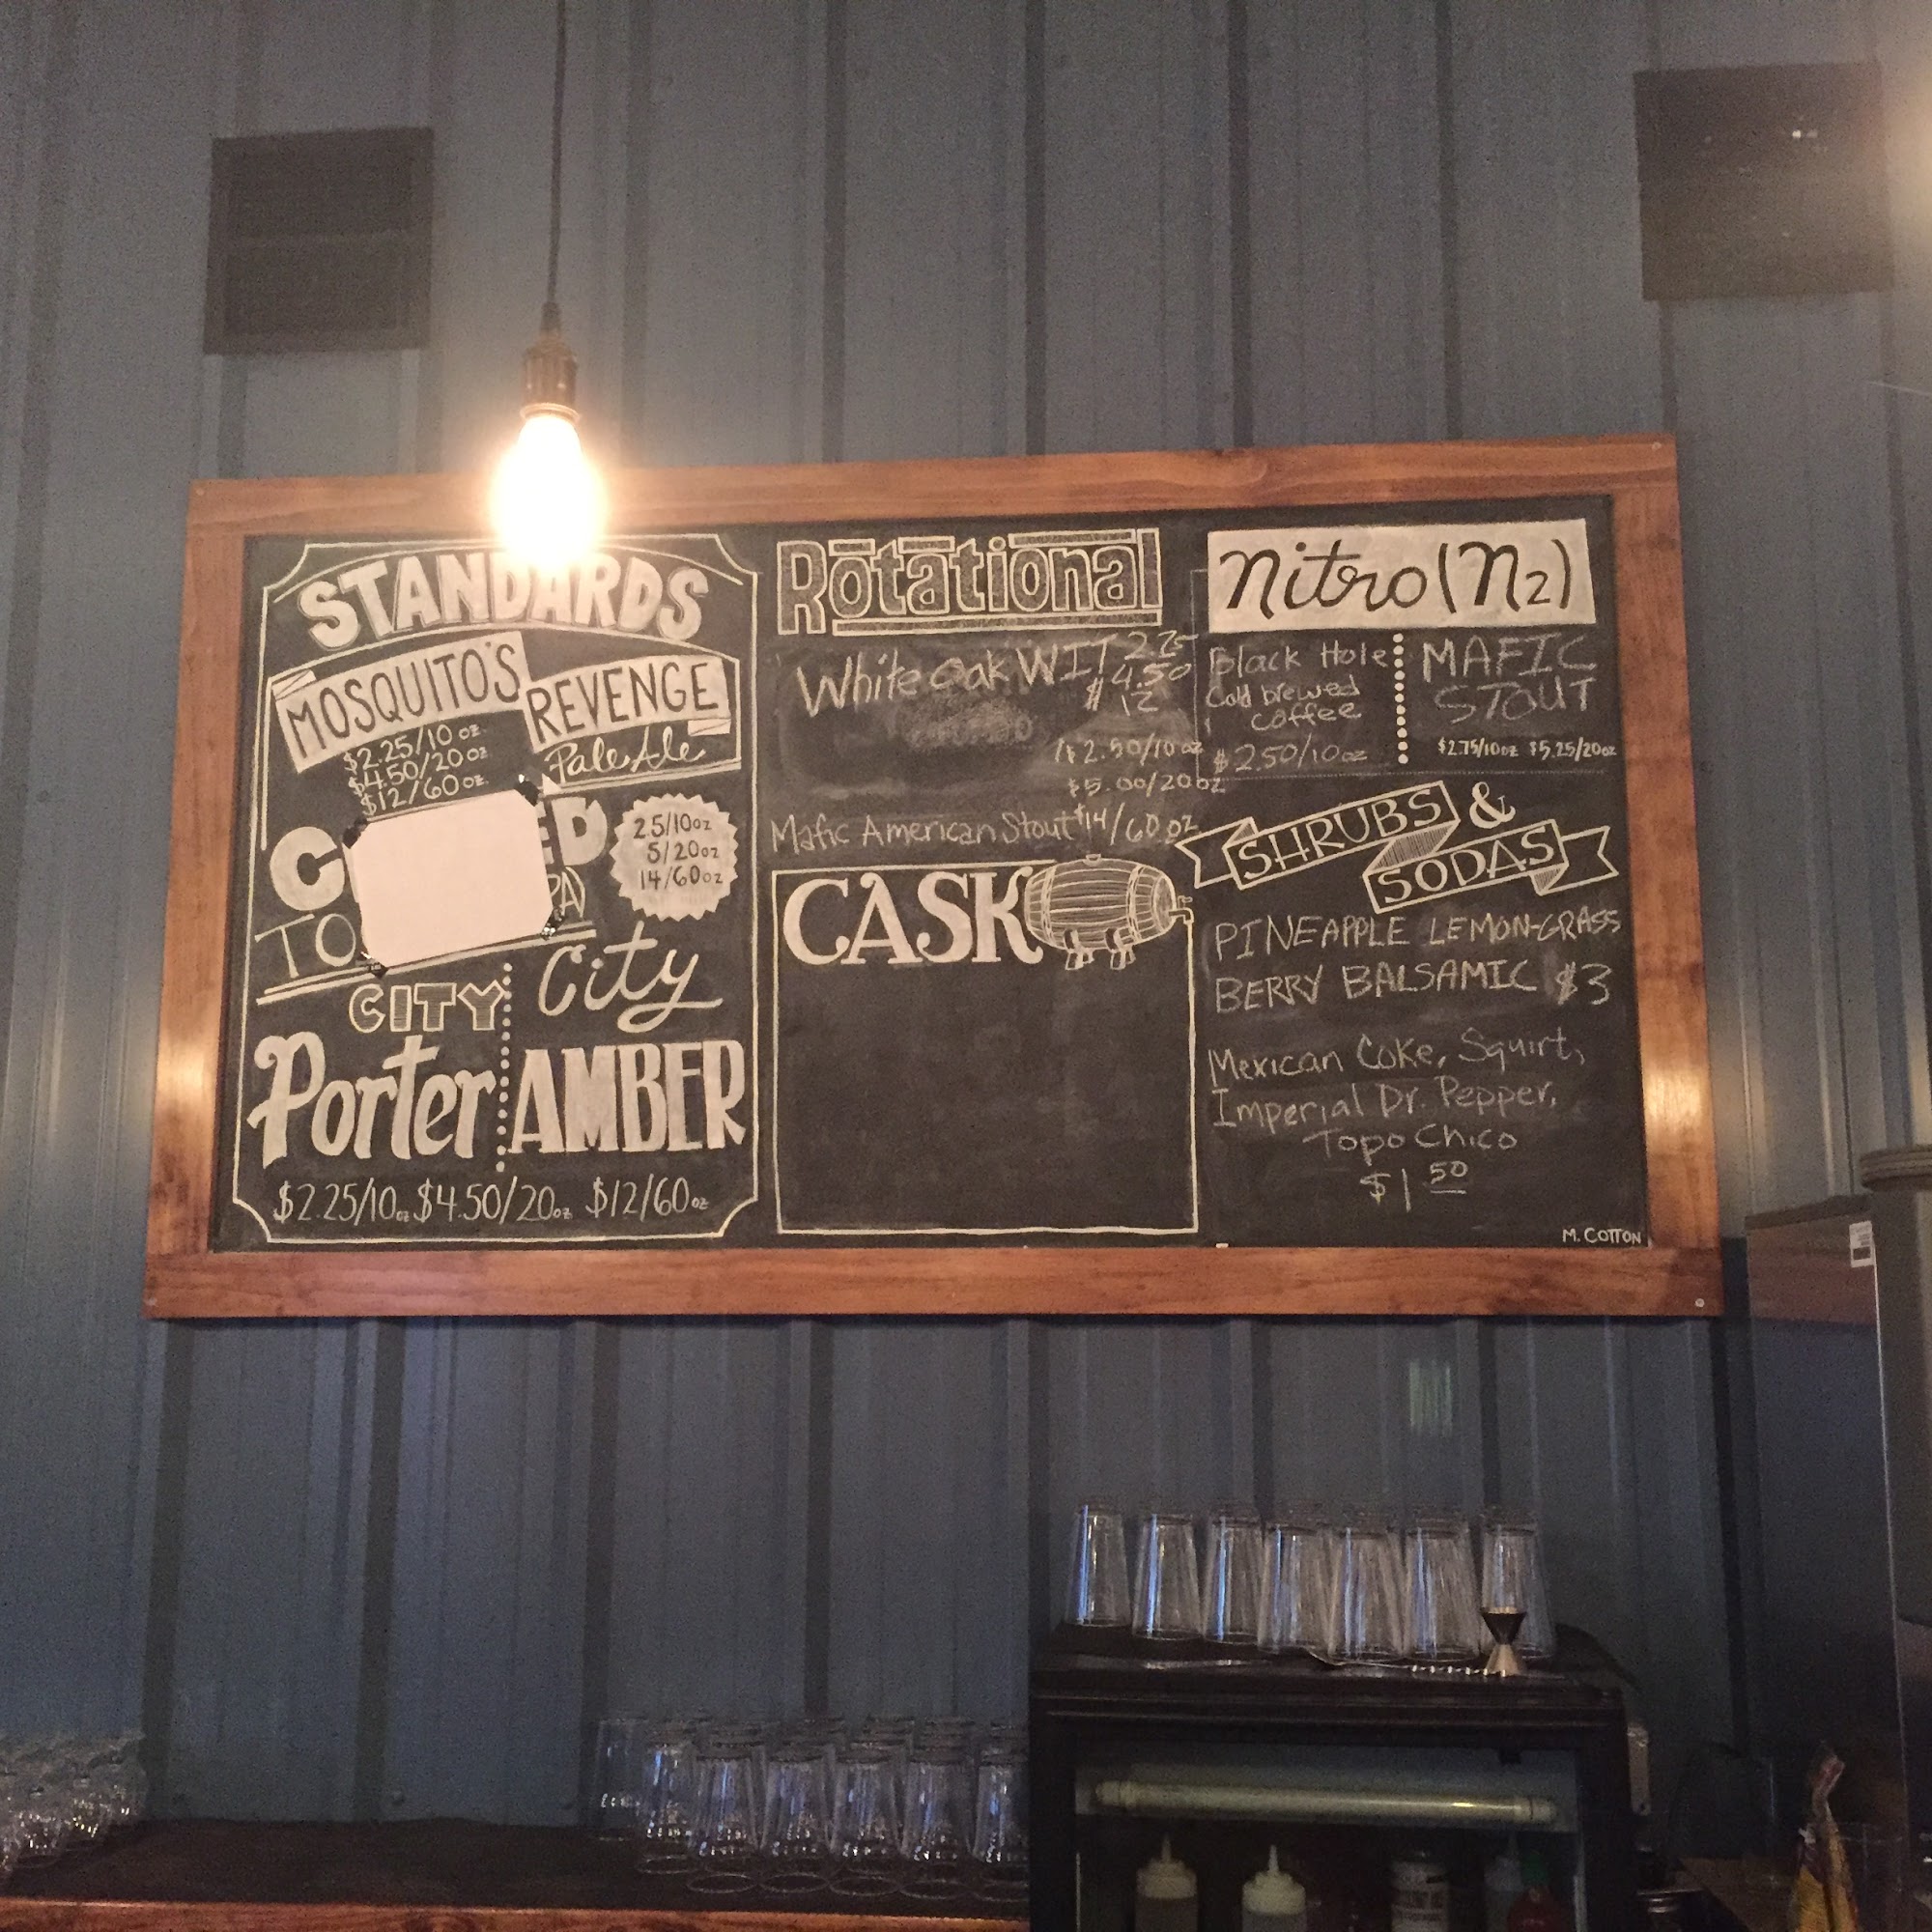 STANDARDS
MOSQUITO'S
REVENGE
Pale Ale
$2.25/10 oz
$4.50/20 oz
$12/60 oz
2.5/10oz
5/20oz
14/60oz
CITY
Porter
City
AMBER
$2.25/10oz $4.50/20oz $12/60oz
Rotational
White Oak WIT 2.25
4.50
$12
$2.50/10 oz
$5.00/20 oz
Mafic American Stout $14/60 oz
CASK
Nitro (N2)
Black Hole
Cold brewed
coffee
$2.50/10oz
MAFIC
STOUT
$2.75/10oz $5.25/20oz
SHRUBS &
SODAS
PINEAPPLE LEMON-GRASS
BERRY BALSAMIC $3
Mexican Coke, Squirt,
Imperial Dr. Pepper,
Topo Chico
$1 50
M. COTTON